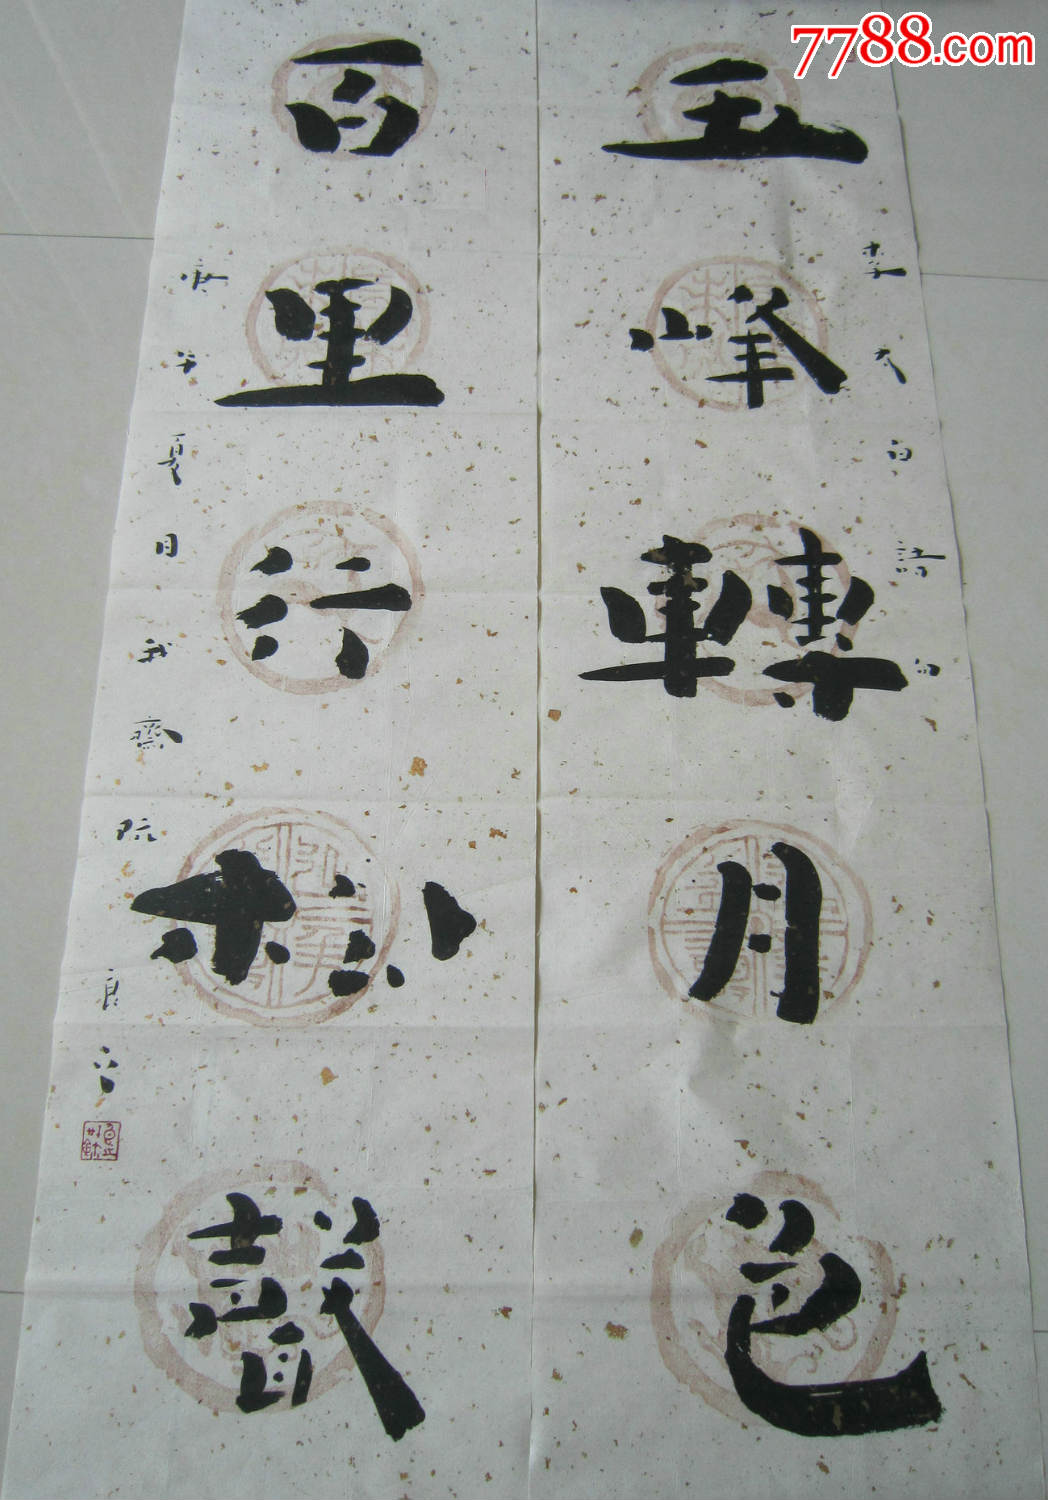 7788.com
李太白詩句
五峰轉月色
百里行松聲
庚午夏月我齋阮良之